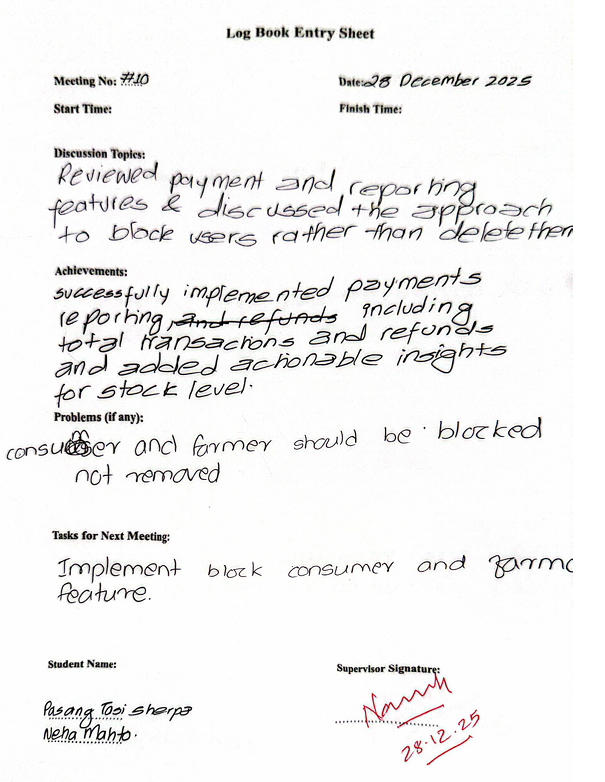 Log Book Entry Sheet
Meeting No: #10 Date: 28 December 2025
Start Time: Finish Time:
Discussion Topics:
Reviewed payment and reporting
features & discussed the approach
to block users rather than delete them
Achievements:
successfully implemented payments
reporting and refunds including
total transactions and refunds
and added actionable insights
for stock level.
Problems (if any):
consumer and farmer should be blocked
not removed
Tasks for Next Meeting:
Implement block consumer and farme
feature.
Student Name: Supervisor Signature:
Pasang Tasi Sherpa
Neha Mahto.
28.12.25